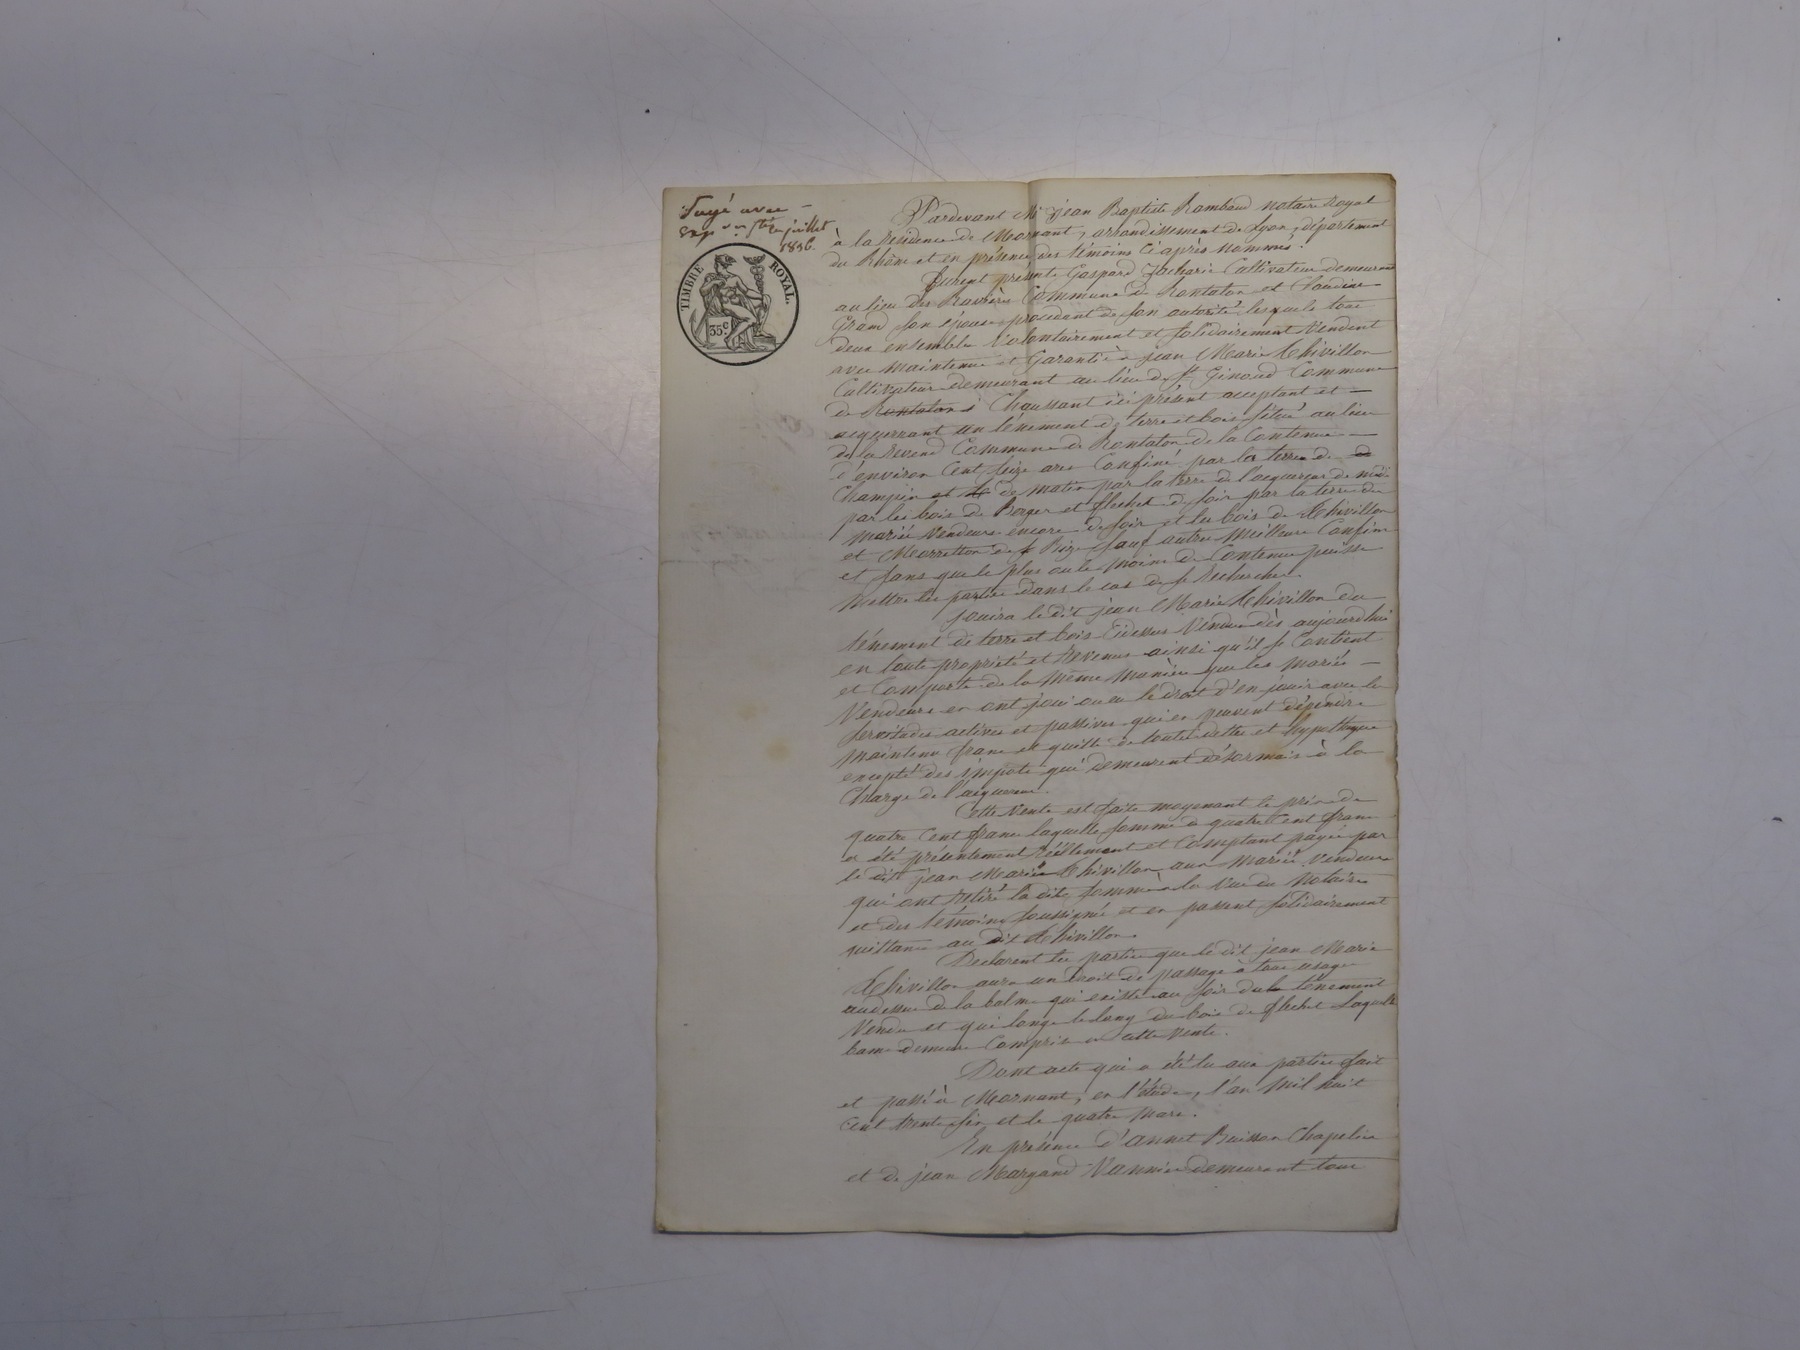 Payé avec
Exp on sté en juillet
1836.
TIMBRE ROYAL.
35 c
Pardevant Me jean Baptiste Rambaud notaire Royal
à la Résidence de Mornant, arrondissement de Lyon, département
du Rhône et en présence des témoins ci après nommés.
Furent présents Gaspard Zacharie Cultivateur demeurant
au lieu des Ravières Commune de Rontalon et Claudine
Grand son épouse procédant de son autorité lesquels tous
deux ensembles volontairement et solidairement Vendent
avec maintenue et Garantie à jean Marie Thivillon
Cultivateur demeurant au lieu de St Giroud Commune
de Rontalon à Chaussant ici présent acceptant et
acquerrant un ténement de terre et bois situé au lieu
de la Commune de Rontalon de la Contenue
d'environ Cent seize ares Confiné par la terre de de
Champin et de de matin par la terre de l'acquereur de midi
par les bois de Berger et flechet de soir par la terre des
mariés Vendeurs encore de soir et les bois de Thivillon
et de Bize sauf autres Meilleurs Confins
et sans que le plus ou le moins de Contenue puisse
mettre les parties dans le cas de se Rechercher.
jouira le dit jean Marie Thivillon du
ténement de terre et bois Cidessus Vendu dès aujourdhui
en toute propriété et Revenus ainsi qu'il se Contient
et Comporte de la même manière que les mariés
Vendeurs en ont joui ou eu le droit d'en jouir avec les
servitudes actives et passives qui en peuvent dépendre
maintenu franc et quitte de toutes dettes et hypothèques
excepté des impots qui demeurent désormais à la
Charge de l'acquereur.
Cette Vente est faite moyenant le prix de
quatre Cent francs laquelle somme de quatre Cent francs
a été présentement Réellement et Comptant payée par
le dit jean Marie Thivillon aux mariés Vendeurs
qui ont Retiré la dite somme à la Vue du Notaire
et des témoins soussignés et en passent solidairement
quittance au dit Thivillon.
Declarent les parties que le dit jean Marie
Thivillon aura un droit de passage à tous usages
audessus de la balme qui existe au soir du tènement
Vendu et qui longe le long du bois de flechet Laquelle
bame demeure Comprise en cette vente.
Dont acte qui a été lu aux parties fait
et passé à Mornant, en l'étude, l'an Mil huit
Cent trente six et le quatre Mars.
En présence d'annet Buisson Chapelier
et de jean Margand Vannier demeurant tous